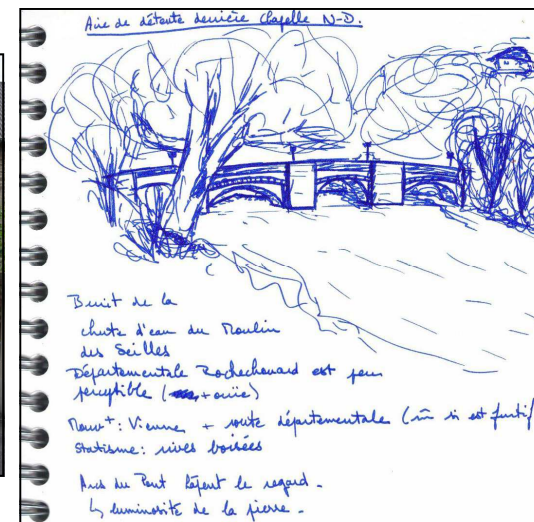 Aire de détente derrière Chapelle N-D.
Bruit de la
chute d'eau du Moulin
des Seilles
Départementale Rochechouard est peu
perceptible ( + ouïe)
Mouv+: Vienne + route départementale ( si est furtif
Statisme: rives boisées
Arcs du Pont le regard.
↳ luminosité de la pierre.